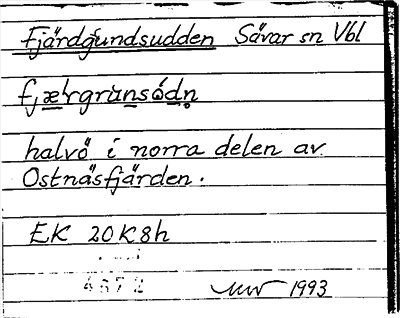 Fjärdgrundsudden Sävar sn Vbl
fjærgrünsódn̥
halvö i norra delen av
Ostnäsfjärden.
EK 20K8h
4672
1993